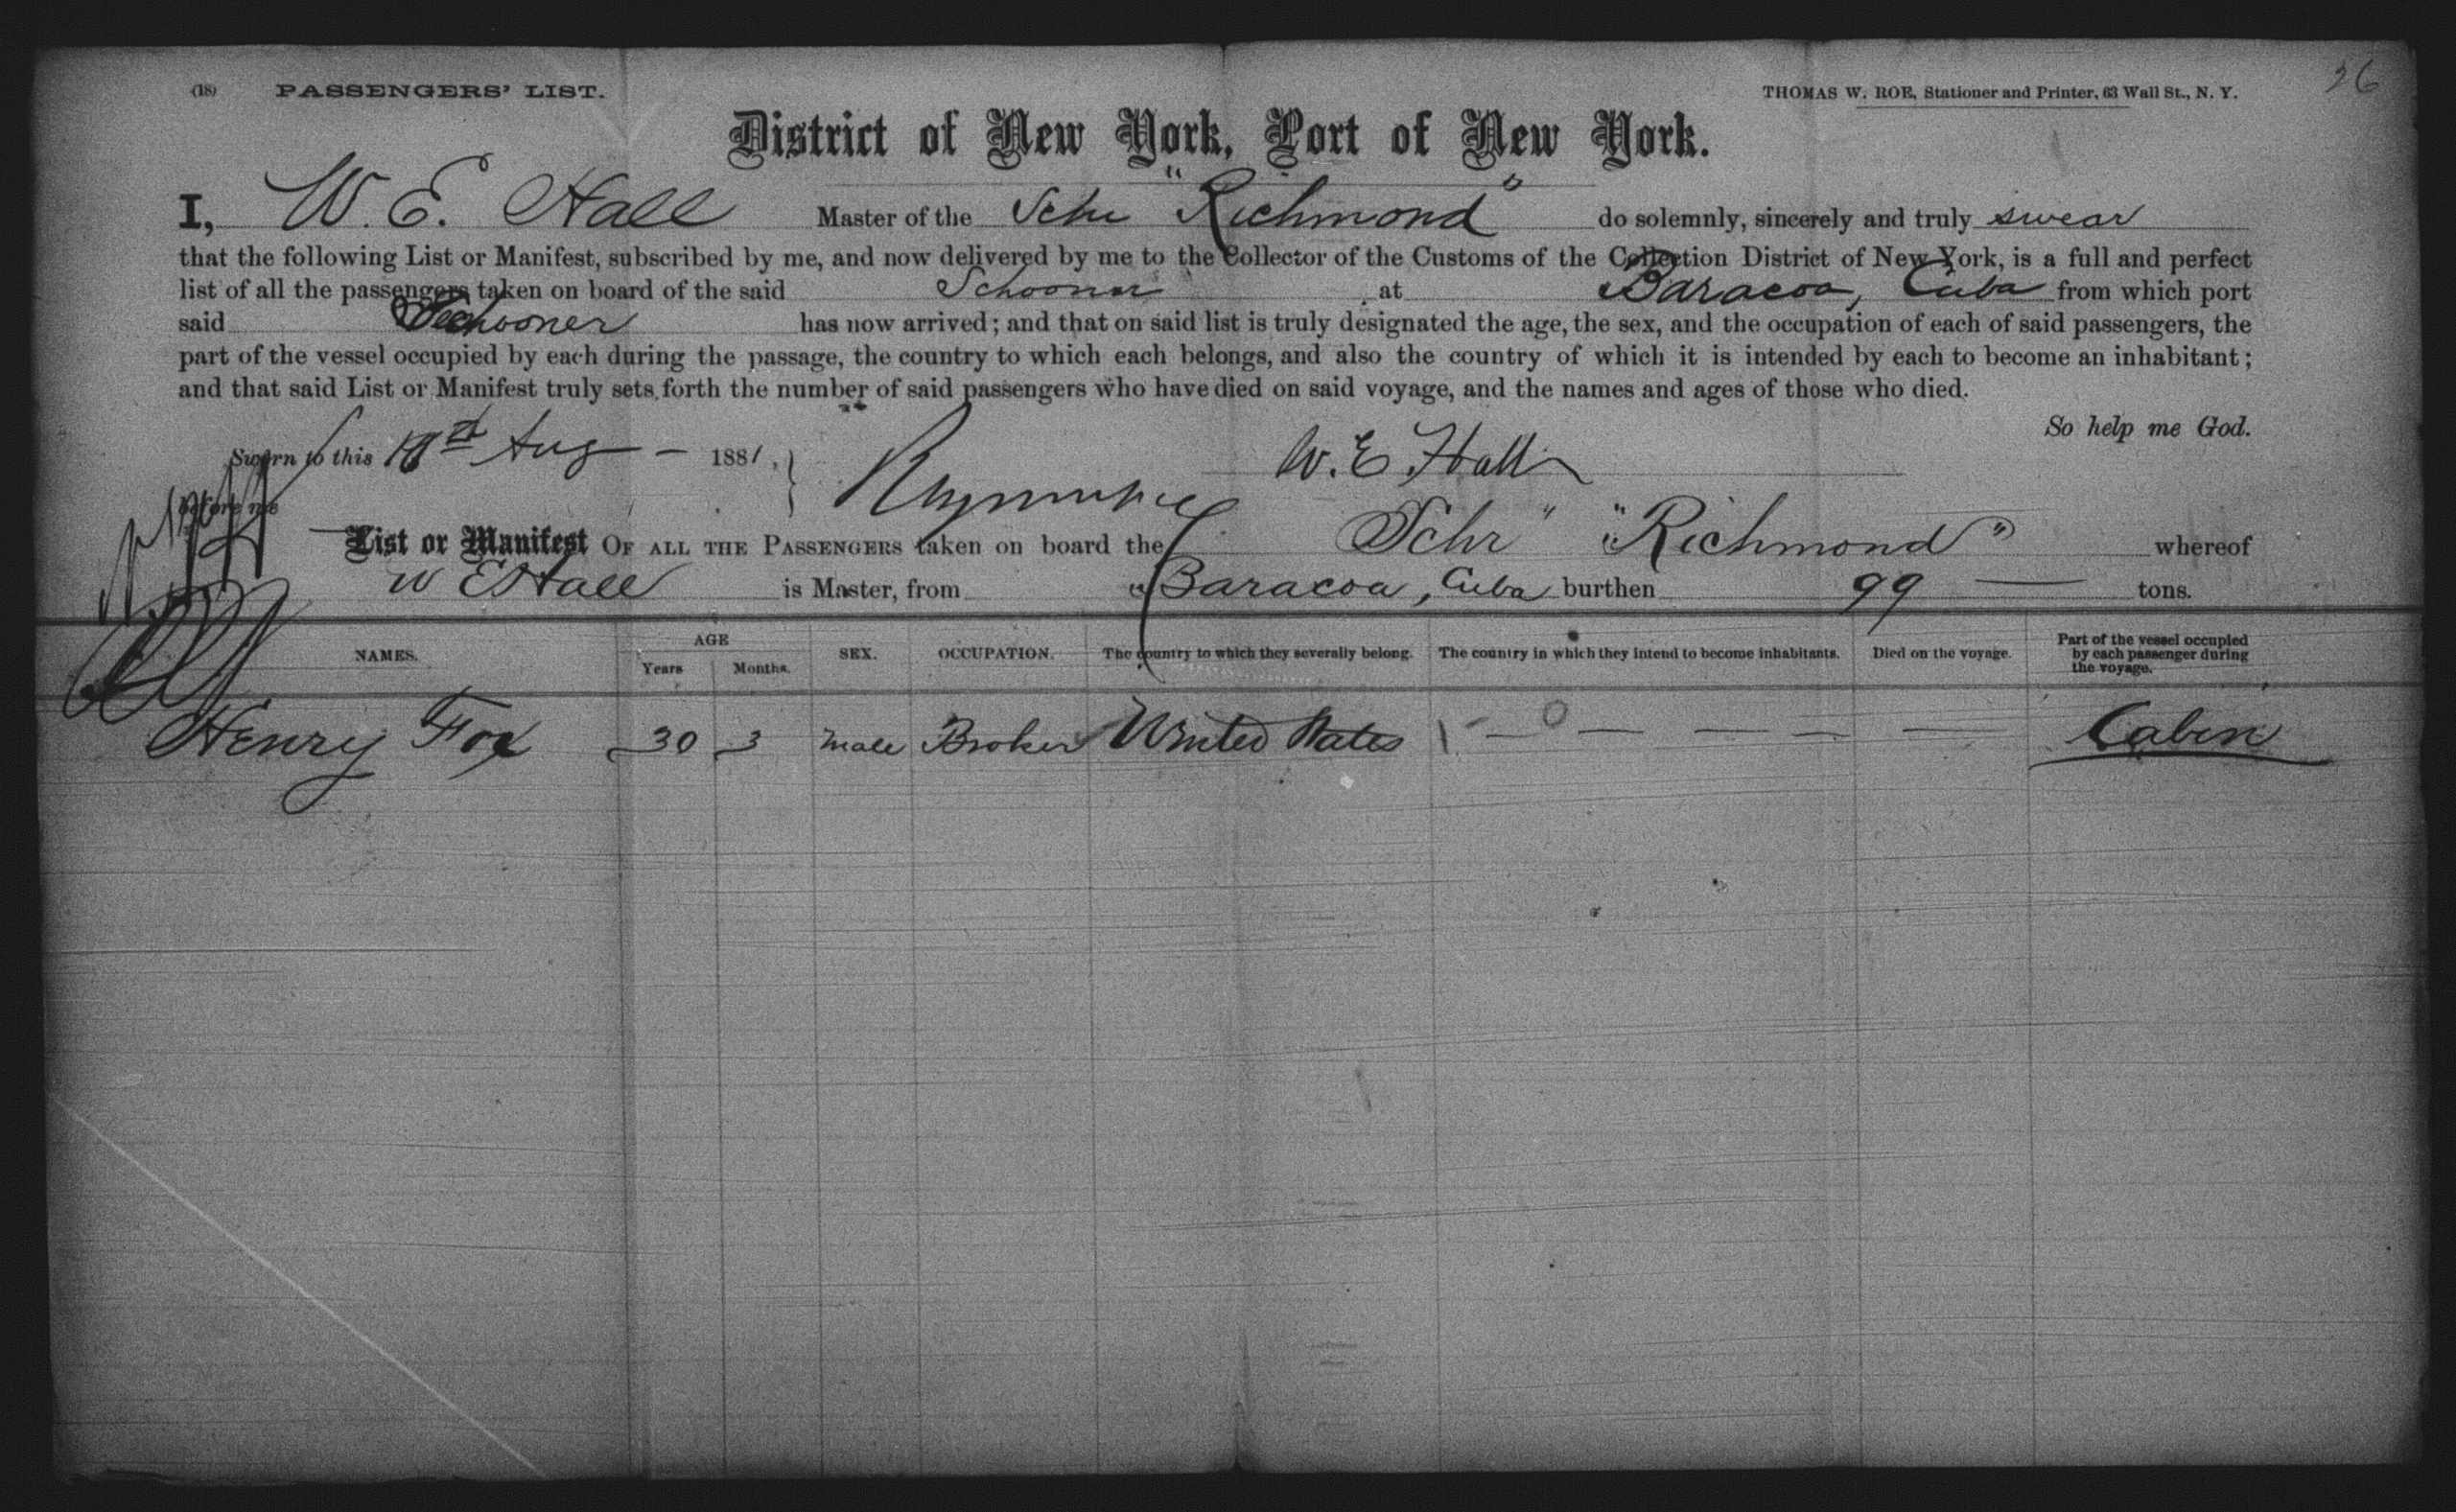 (18) PASSENGERS' LIST. THOMAS W. ROE, Stationer and Printer, 63 Wall St., N. Y. 26
District of New York, Port of New York.
I, W. E. Hall Master of the Schr "Richmond" do solemnly, sincerely and truly swear
that the following List or Manifest, subscribed by me, and now delivered by me to the Collector of the Customs of the Collection District of New York, is a full and perfect
list of all the passengers taken on board of the said Schooner at Baracoa, Cuba from which port
said Schooner has now arrived; and that on said list is truly designated the age, the sex, and the occupation of each of said passengers, the
part of the vessel occupied by each during the passage, the country to which each belongs, and also the country of which it is intended by each to become an inhabitant;
and that said List or Manifest truly sets forth the number of said passengers who have died on said voyage, and the names and ages of those who died.
So help me God.
Sworn to this Aug - 1881, W. E. Hall
before me
List or Manifest OF ALL THE PASSENGERS taken on board the Schr "Richmond" whereof
W E Hall is Master, from Baracoa, Cuba burthen 99 tons.
NAMES. AGE Years Months. SEX. OCCUPATION. The country to which they severally belong. The country in which they intend to become inhabitants. Died on the voyage. Part of the vessel occupied by each passenger during the voyage.
Henry Fox 30 3 male Broker United States Cabin